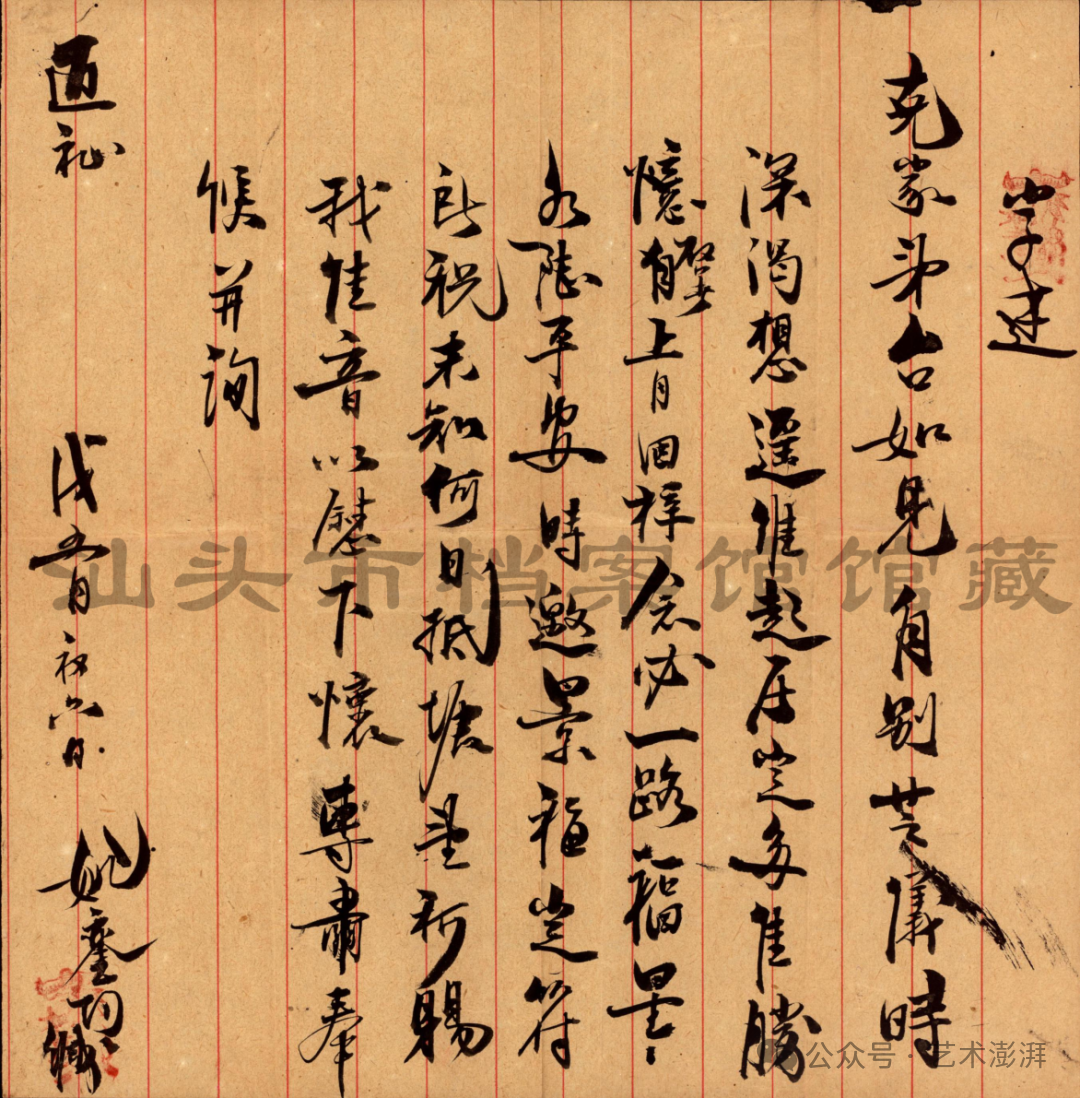 字達
克家弟台如見自别芝儀時
深渴想遥惟起居定多佳勝
憶有寵上月回梓念必一路福星
水陸平安時邀景福定符
所祝未知何日抵塘望祈賜
我佳音以慰下懷專肅奉
候并詢
近祉
戊五月初六日 姚鏖均緘
汕头市档案馆馆藏
公众号·艺术澎湃